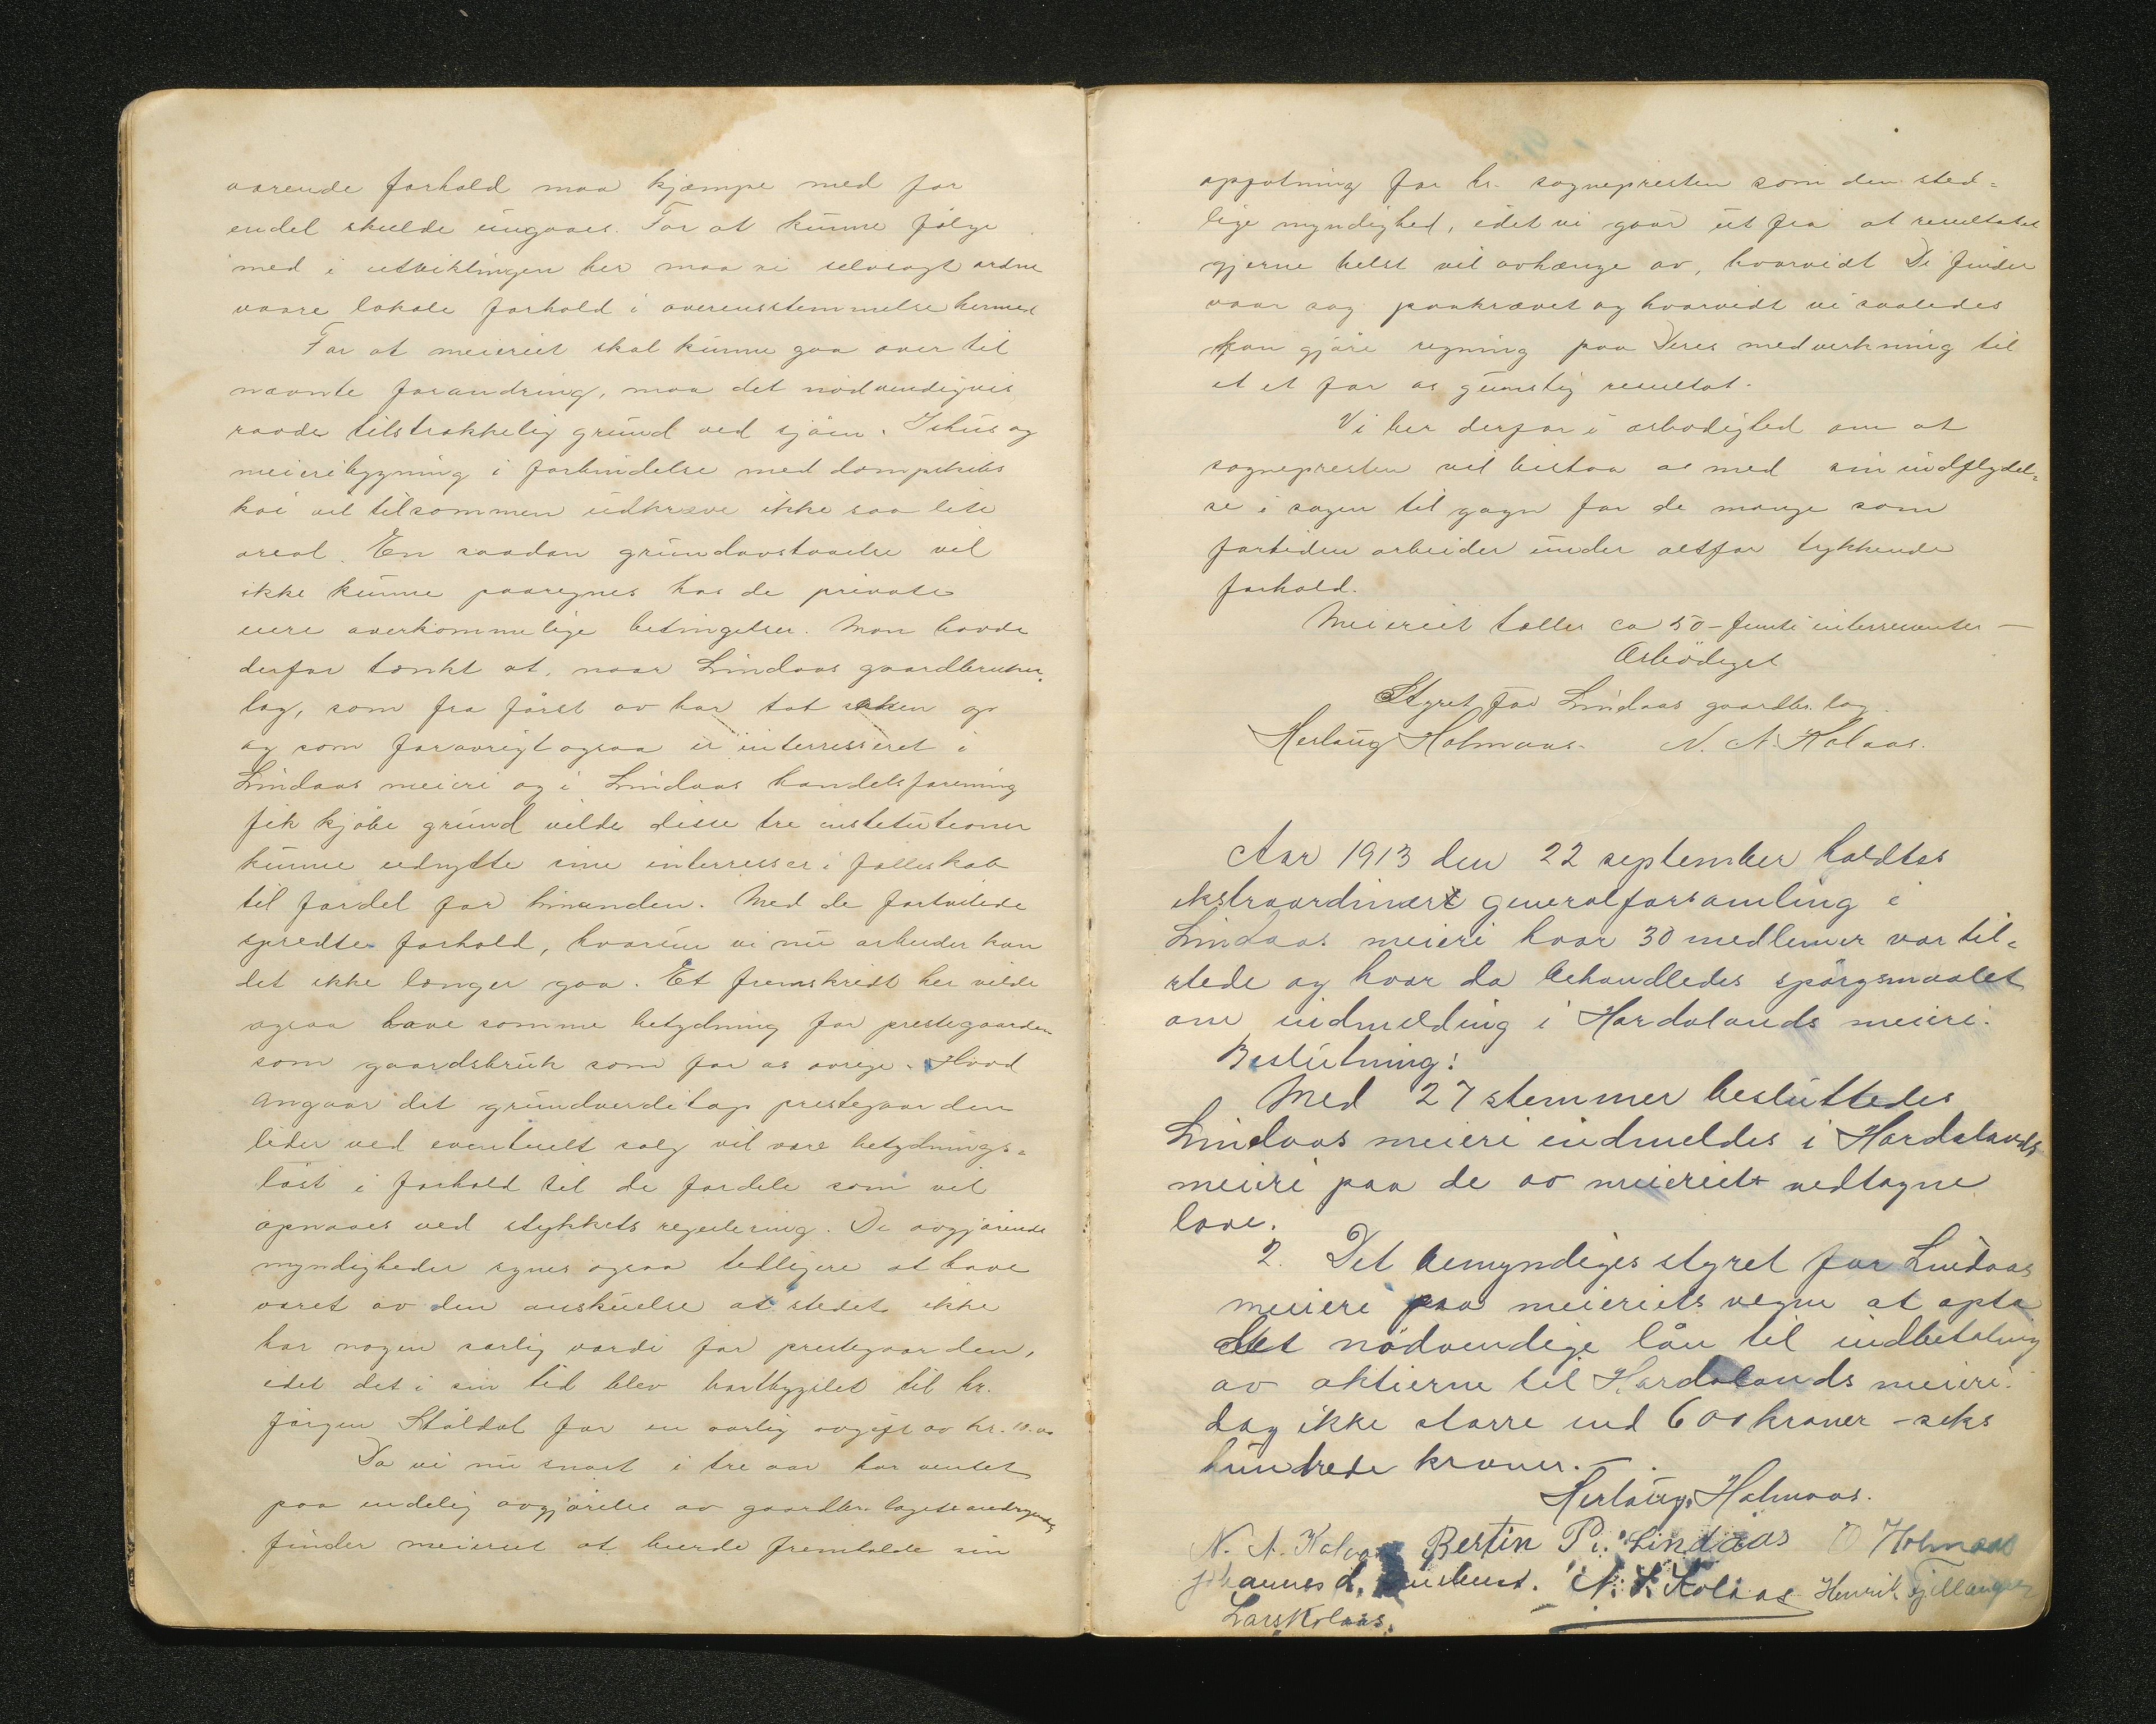 værende forhold maa kjæmpe med for
endel skulde ungaaes. For at kunne følge
med i utviklingen her maa vi selvsagt ordne
vaare lokale forhold i overensstemmelse hermed
For at meieriet skal kunne gaa over til
nævnte forandring, maa det nødvendigvis
raade tilstrækkelig grund ved sjøen. Ishus og
meieribygning i forbindelse med dampskibs
kai vil tilsammen udkræve ikke saa lite
areal. En saadan grundavstaaelse vil
ikke kunne paaregnes hos de private
eiere overkommelige betingelser. Man havde
derfor tænkt at, naar Lindaas gaardbruker,
lag, som fra først av har tat saken op
og som foravrigt ogsaa er interresseret i
Lindaas meieri og i Lindaas handelsforening
fik kjøbe grund vilde disse tre institutioner
kunne udnytte sine interresser i fælleskab
til fordel for hinanden. Med de fortvilede
spredte forhold, hvorun vi nu arbeider kan
det ikke længer gaa. Et fremskridt her vilde
ogsaa have samme betydning for prestegaarden
som gaardsbruk som for os øvrige. Hvad
angaar det grundværditap prestegaarden
lider ved eventuelt salg vil være betydnings=
løst i forhold til de fordele som vil
opnaaes ved stykkets regulering. De avgjørende
myndigheder synes ogsaa tidligere at have
været av den anskuelse at stedet ikke
har nogen særlig værdi for prestegaarden,
idet det i sin tid blev bortbygslet til hr.
Jørgen Skåldal for en aarlig avgift av kr. 10.00
Da vi nu snart i tre aar har ventet
paa endelig avgjørelse av gaardbr. lagets andragende
finder meieriet at burde fremholde sin
opfatning for hr. sognepresten som den sted=
lige myndighed, idet vi gaar ut fra at resultatet
gjerne helst vil avhænge av, hvorvidt De finder
vaar sag paakrævet og hvorvidt vi saaledes
kan gjøre regning paa Deres medverkning til
et et for os gunstig resultat.
Vi ber derfor i ærbødighed om at
sognepresten vil bistaa os med sin indflydel=
se i sagen til gagn for de mange som
fortiden arbeider under altfor trykkende
forhold.
Meieriet tæller ca 50 - femti interresenter —
Ærbødigst
Styret for Lindaas gaardbr. lag.
Herlaug Holmaas. N. A. Kolaas.
Aar 1913 den 22 september holdtes
ekstraordinært generalforsamling i
Lindaas meieri hvor 30 medlemer var til=
stede og hvor da behandledes spørgsmaalet
om indmelding i Hordalands meieri.
Beslutning:
Med 27 stemmer besluttedes
Lindaas meieri indmeldes i Hordalands
meieri paa de av meieriets vedtagne
love.
2. Det bemyndiges styret for Lindaas
meieri paa meieriets vegne at opta
det nødvendige lån til indbetaling
av aktierne til Hordalands meieri.
dog ikke større end 600 kroner - seks
hundrede kroner. —
Herlaug Holmaas.
N. A. Kolaas Bertin P. Lindaas O Holmaas
Johannes L. N. S. Kolaas Henrik Fjellanger
Lars Kolaas.